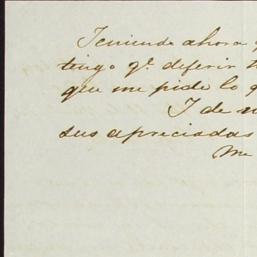 Teniendo ahora
tengo qe. deferir
que me pide lo
I de
sus apreciadas
Me